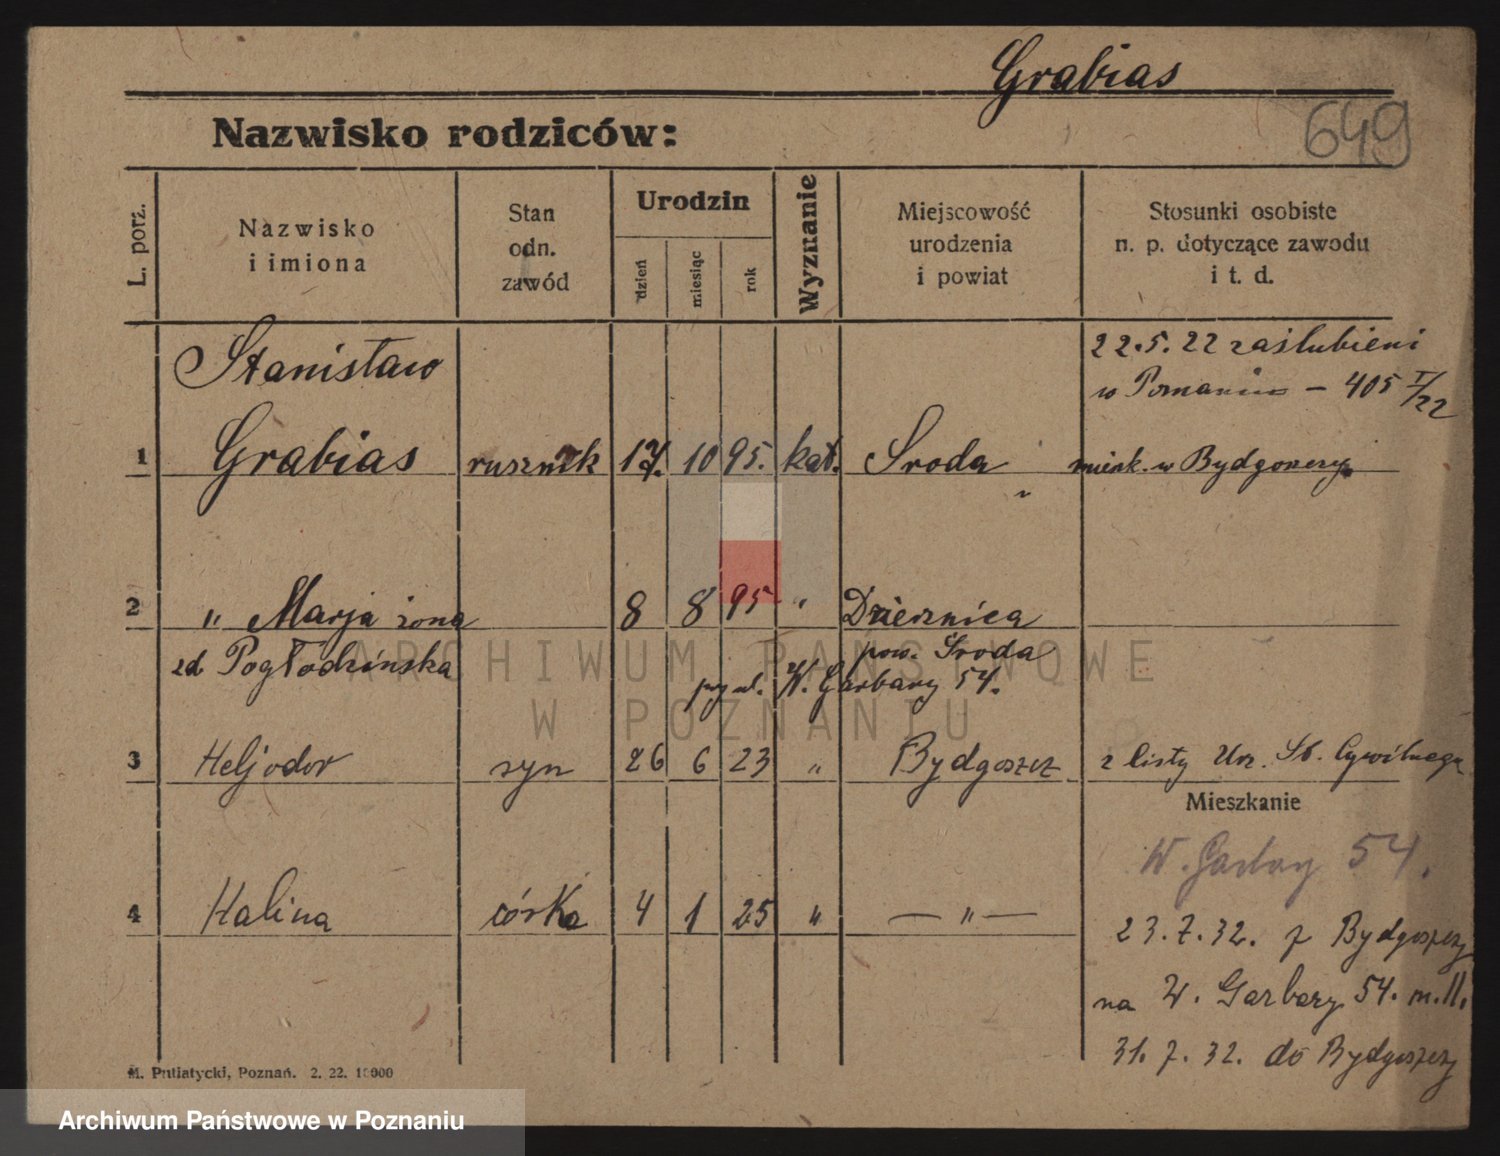 Grabias
649
Nazwisko rodziców:
L. porz.
Nazwisko
i imiona
Stan
odn.
zawód
Urodzin
dzień
miesiąc
rok
Wyznanie
Miejscowość
urodzenia
i powiat
Stosunki osobiste
n. p. dotyczące zawodu
i t. d.
Stanisław
22.5.22 zaślubieni
w Poznaniu - 405 I/22
1 Grabias rusznik 17. 10 95. kat. Sroda miesk. w Bydgoszczy
"
2 " Marja żona 8 8 95 " Dziernica
zd Pogłodzińska pow. Sroda
przy ul. W. Garbary 54.
3 Heljodor syn 26 6 23 " Bydgoszcz z listy Urz. St. Cywilnego
Mieszkanie
W. Garbary 54.
4 Halina córka 4 1 25 " — " —
23.7.32. z Bydgoszczy
na W. Garbary 54. m. 11.
31.7.32. do Bydgoszczy
M. Putiatycki, Poznań. 2. 22. 10000
ARCHIWUM PAŃSTWOWE
W POZNANIU
Archiwum Państwowe w Poznaniu